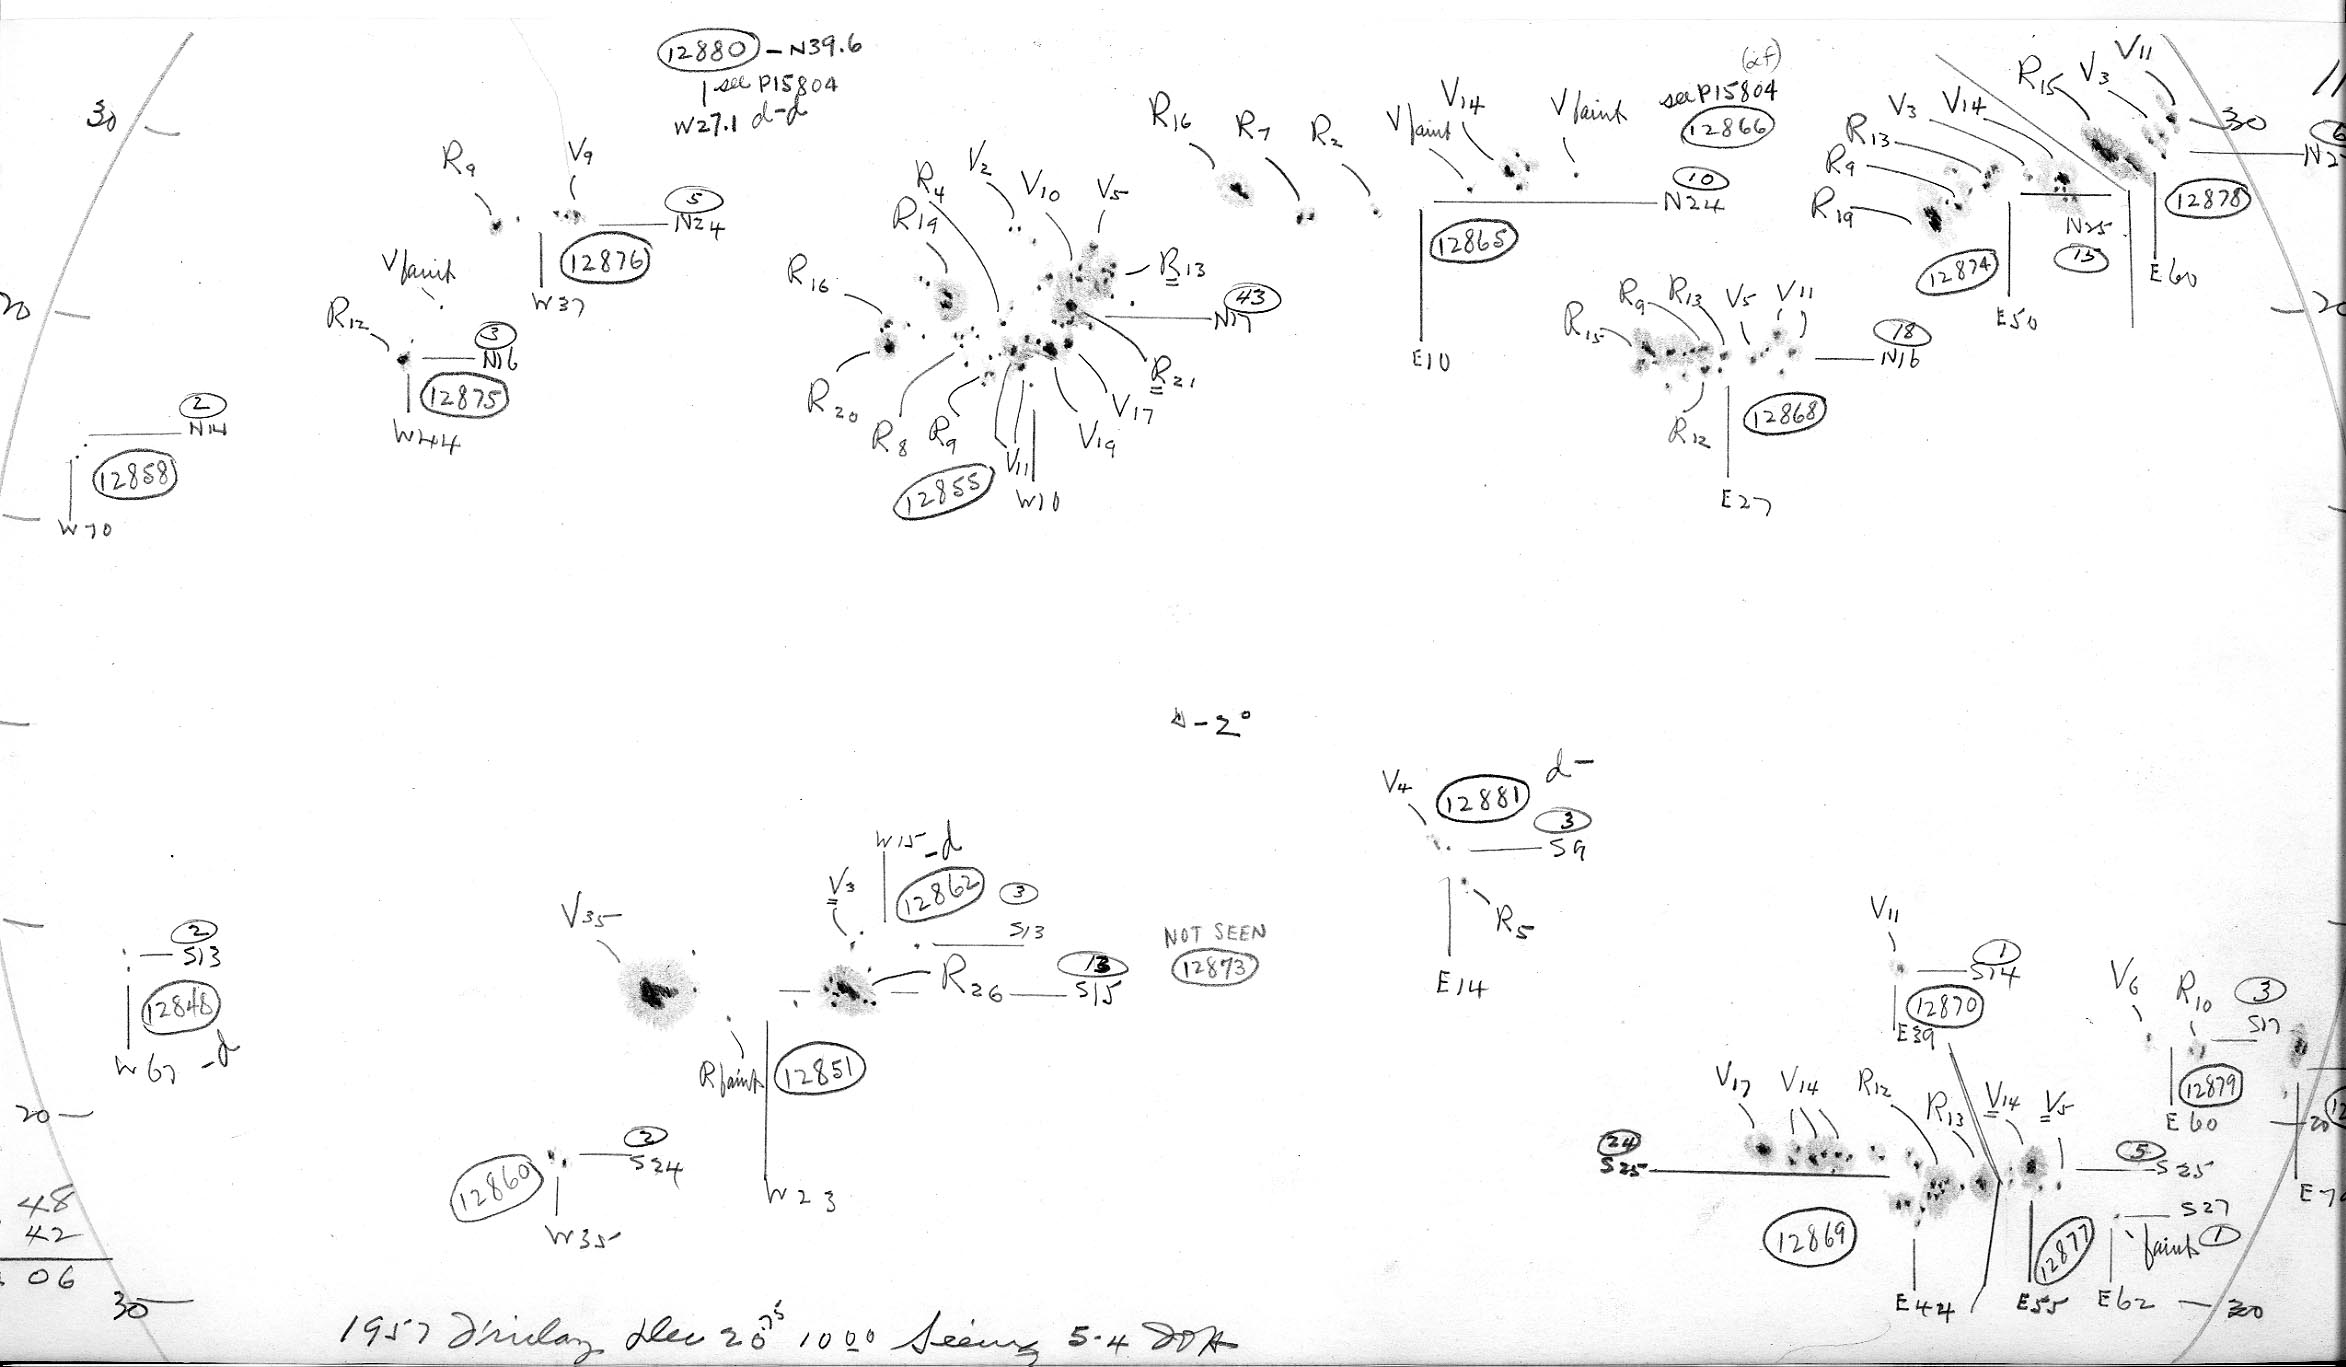 12880 - N39.6
see P15804
W27.1 d-d
30
R9
V9
5
N24
12876
W37
Vfaint
R12
3
N16
12875
W44
20
2
N14
12858
W70
R4
V2
V10
V5
R19
R16
R13
43
N17
R20
R8
R9
V11
V19
V17
R21
12855
W10
R16
R7
R2
Vfaint
V14
Vfaint
(αf)
see P15804
12866
10
N24
12865
E10
R15
R9
R13
V5
V11
18
N16
R12
12868
E27
V3
V14
R13
R9
R19
N25
13
12874
E50
R15
V3
V11
30
12878
E60
20
-2°
V4
12881
d-
3
S9
R5
E14
2
S13
12848
W67 -d
V35
V3
W15 -d
12862
3
S13
R26
13
S15
Rfaint
12851
W23
NOT SEEN
12873
12860
2
S24
W35
V11
1
S14
12870
E39
V6
R10
3
S17
12879
E60
V17
V14
R12
R13
V14
V5
24
S25
5
S25
12869
E44
12877
E55
S27
faint 1
E62
20
20
48
42
06
30
30
1957 Friday Dec 20.75 1000 Seeing 5-4